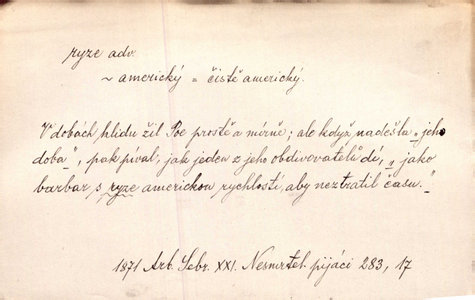 ryze adv.
~ americký = čistě americký.
V dobách klidu žil Poe prostě a mírně; ale když nadešla „jeho
doba“, pak píval, jak jeden z jeho obdivovatelů dí, „jako
barbar s ryze americkou rychlostí, aby neztratil času.“
1871 Arb. Sebr. XXI. Nesmrtel. pijáci 283, 17